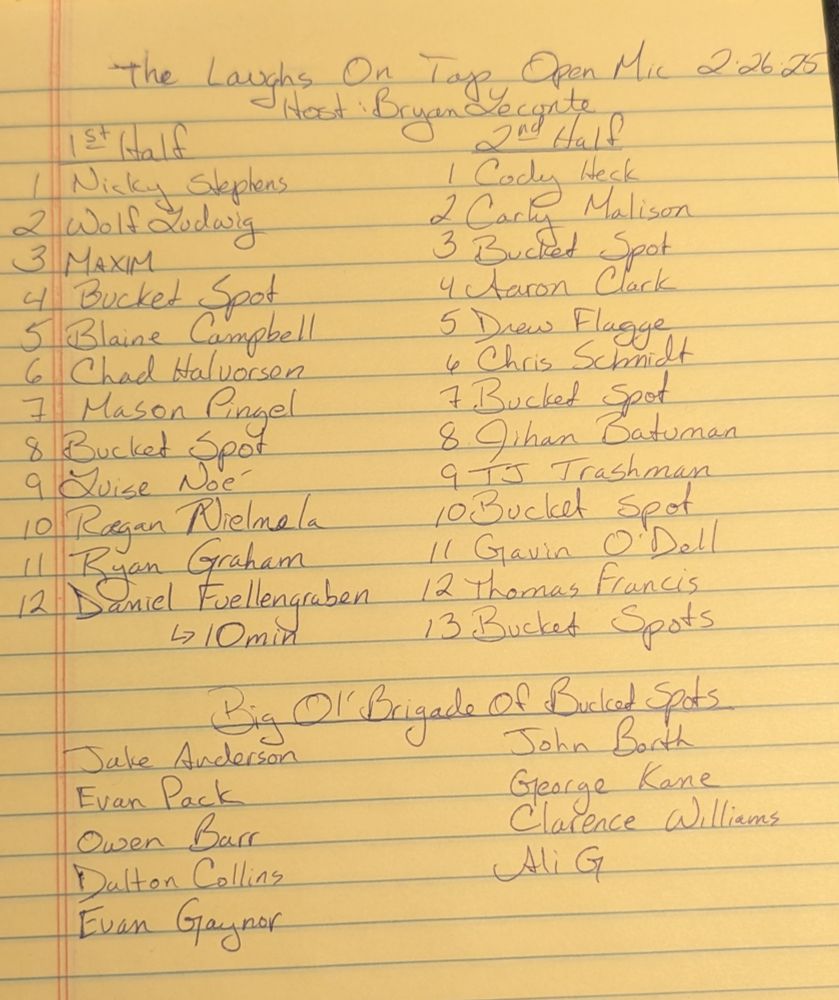 The Laughs On Tap Open Mic 2·26·25
Host: Bryan Leconte
1st Half
1 Nicky Stephens
2 Wolf Ludwig
3 MAXIM
4 Bucket Spot
5 Blaine Campbell
6 Chad Halvorsen
7 Mason Pingel
8 Bucket Spot
9 Luise Noé
10 Raegan Nielmela
11 Ryan Graham
12 Daniel Fuellengraben
↳ 10min
2nd Half
1 Cody Heck
2 Carly Malison
3 Bucket Spot
4 Aaron Clark
5 Drew Flagge
6 Chris Schmidt
7 Bucket Spot
8 Jihan Batuman
9 TJ Trashman
10 Bucket Spot
11 Gavin O'Dell
12 Thomas Francis
13 Bucket Spots
Big Ol' Brigade Of Bucket Spots
Jake Anderson
Evan Pack
Owen Barr
Dalton Collins
Evan Gaynor
John Barth
George Kane
Clarence Williams
Ali G